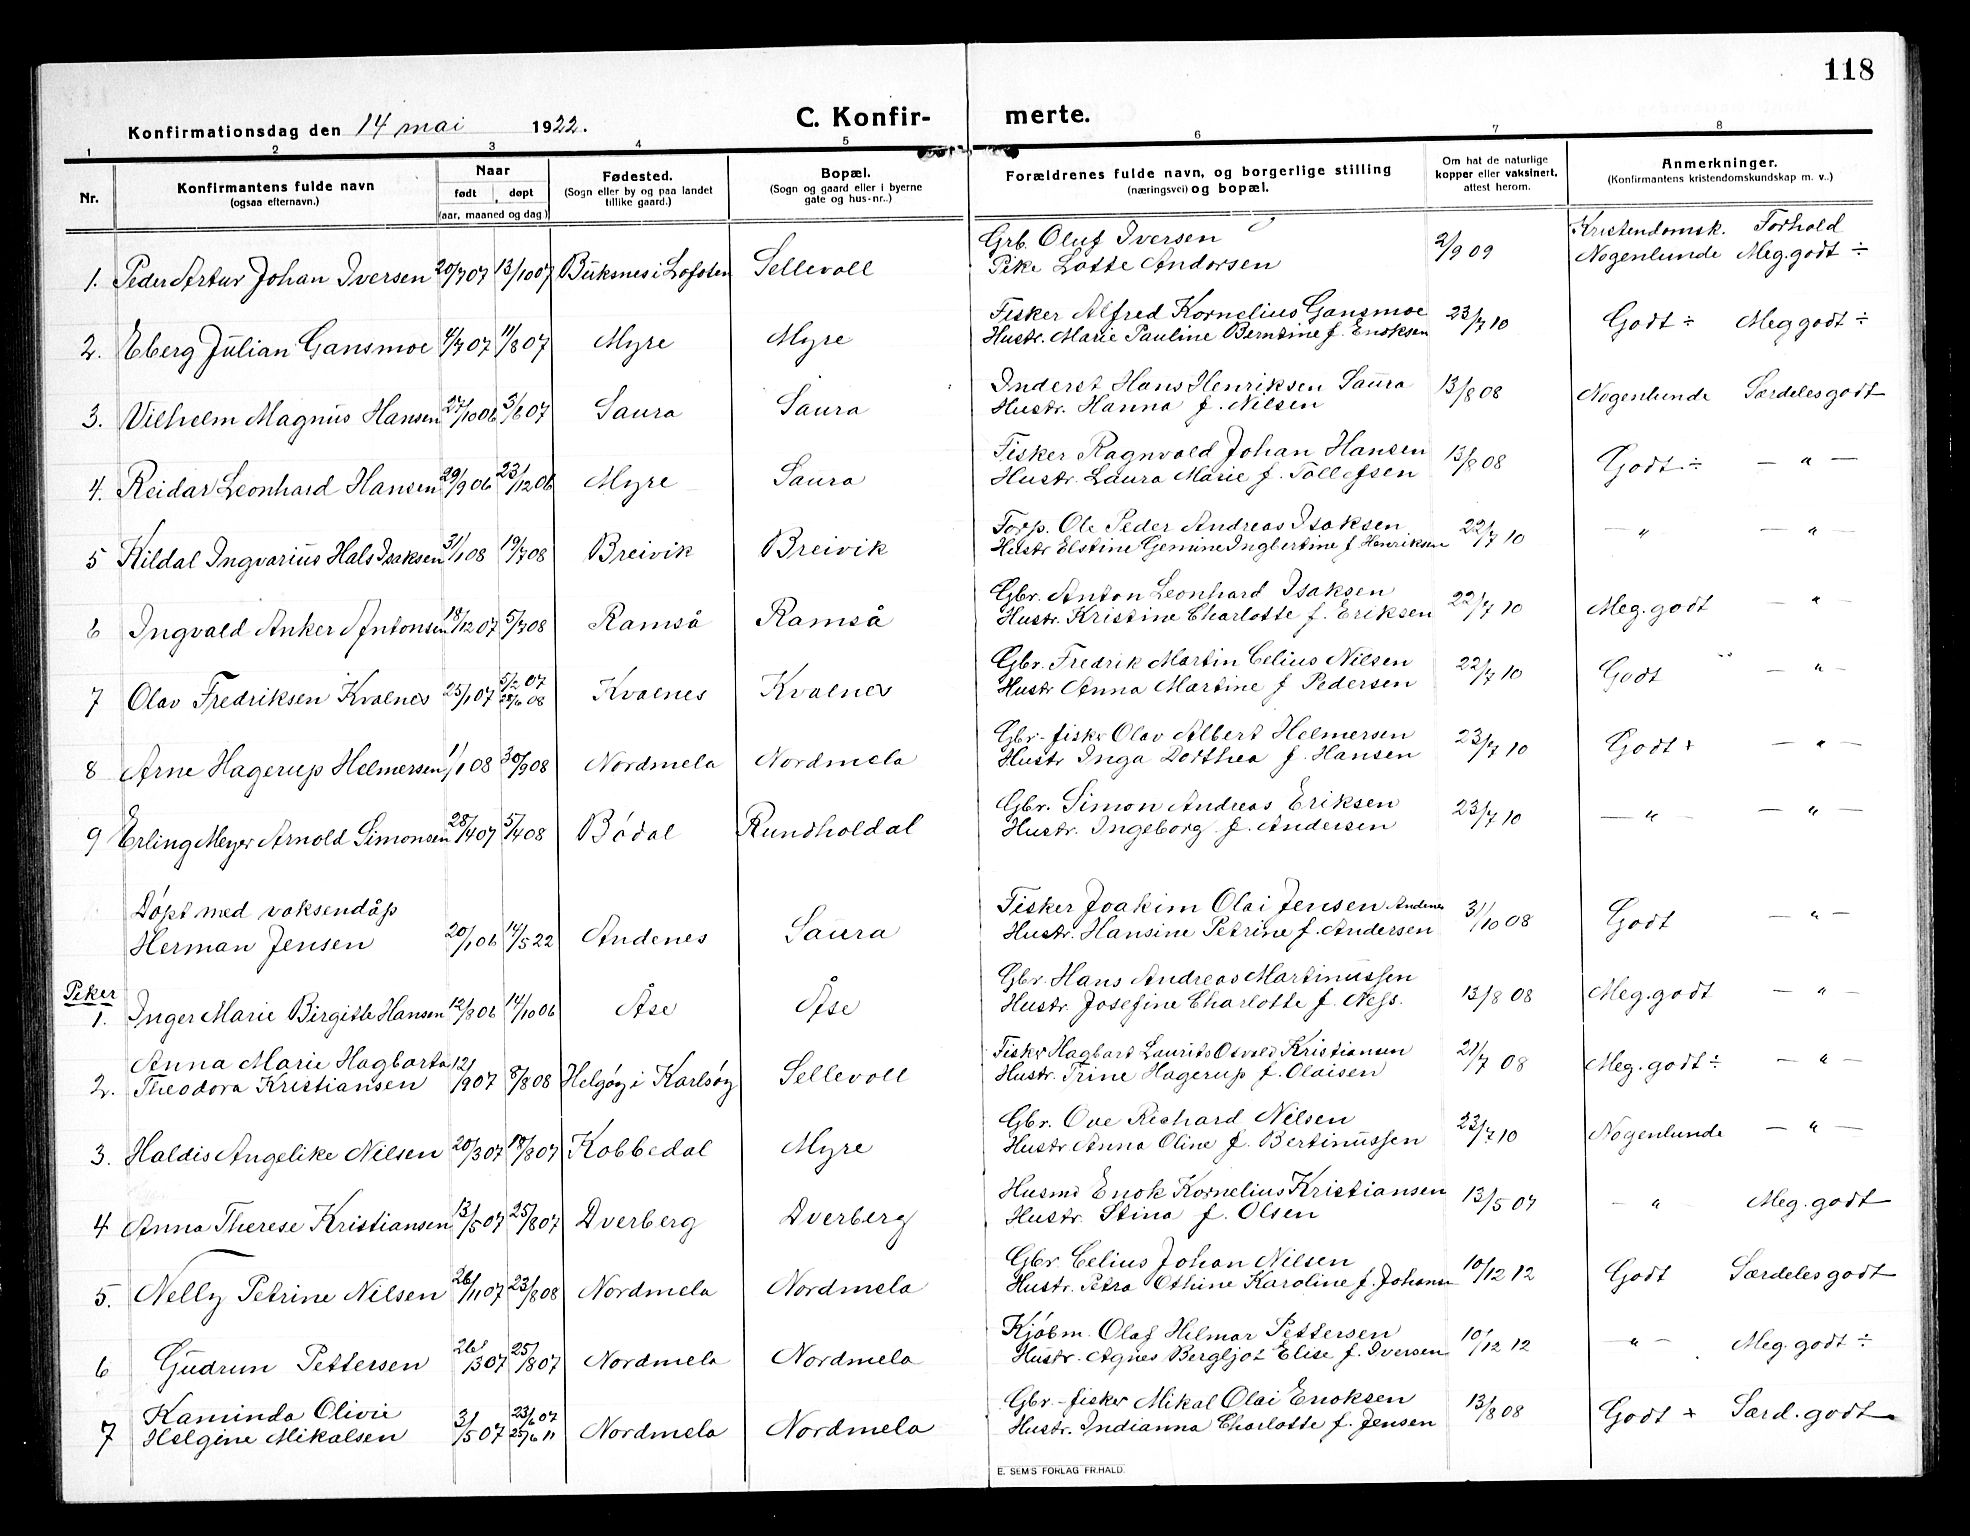 118
Konfirmationsdag den 14 mai 1922. C. Konfirmerte.
1 2 3 4 5 6 7 8
Nr. Konfirmantens fulde navn (ogsaa efternavn.) Naar født døpt (aar, maaned og dag) Fødested. (Sogn eller by og paa landet tillike gaard.) Bopæl. (Sogn og gaard eller i byerne gate og hus-nr..) Forældrenes fulde navn, og borgerlige stilling (næringsvei) og bopæl. Om hat de naturlige kopper eller vaksinert, attest herom. Anmerkninger. (Konfirmantens kristendomskundskap m. v..)
Kristendomsk. Forhold
Grb. Oluf Iversen
1. Peder Artur Johan Iversen 20/7 07 13/10 07 Buksnes i Lofoten Sellevoll Pike Lotte Andorsen 2/9 09 Nogenlunde Meg. godt ÷
Fisker Alfred Kornelius Gansmoe
2. Eberg Julian Gansmoe 4/7 07 11/8 07 Myre Myre Hustr. Marie Pauline Berntine f. Enoksen 23/7 10 Godt ÷ Meg godt ÷
Inderst Hans Henriksen Saura
3. Vilhelm Magnus Hansen 27/10 06 3/6 07 Saura Saura Hustr. Hanna f. Nilsen 13/8 08 Nogenlunde Særdeles godt
Fisker Ragnvald Johan Hansen
4. Reidar Leonhard Hansen 29/9 06 23/12 06 Myre Saura Hustr. Laura Marie f. Tollefsen 13/8 08 Godt ÷ — " —
Forp. Ole Peder Andreas Isaksen
5 Kildal Ingvarius Hals Isaksen 31/1 08 19/7 08 Breivik Breivik Hustr Elstine Gemine Ingbertine f. Henriksen 22/7 10 — " — — " —
Gbr. Anton Leonhard Isaksen
6 Ingvald Anker Antonsen 18/12 07 5/7 08 Ramså Ramså Hustr. Kristine Charlotte f. Eriksen 22/7 10 Meg. godt — " —
Gbr. Fredrik Martin Celius Nilsen
7 Olav Fredriksen Kvalnes 25/1 07 5/2 07 28/6 08 Kvalnes Kvalnes Hustr Anna Martine f Pedersen 22/7 10 Godt — " —
Gbr-fisker Olav Albert Helmersen
8 Arne Hagerup Helmersen 1/1 08 30/9 08 Nordmela Nordmela Hustr Inga Dorthea f. Hansen 23/7 10 Godt + — " —
Gbr. Simon Andreas Eriksen
9 Erling Meyer Arnold Simonsen 28/4 07 5/4 08 Bódal Rundholdal Hustr. Ingeborg f. Andersen 23/7 10 — " — — " —
Dópt med voksendåp Fisker Joakim Olai Jensen Andenes
Herman Jensen 20/1 06 14/5 22 Andenes Saura Hustr. Hansine Petrine f. Andersen 31/10 08 Godt — " —
Piker Gbr. Hans Andreas Martinussen
1. Inger Marie Birgitte Hansen 12/8 06 14/10 06 Åse Åse Hustr. Josefine Charlotte f. Ness. 13/8 08 Meg. godt — " —
Anna Marie Hagbarta Fisker Hagbart Laurits Osvald Kristiansen
2. Theodora Kristiansen 12/9 07 8/8 08 Helgöy i Karlsöy Sellevoll Hustr. Trine Hagerup f. Olaisen 21/7 08 Meg. godt ÷ — " —
Gbr. Ove Richard Nilsen
3. Haldis Angelike Nilsen 20/3 07 18/8 07 Kobbedal Myre Hustr Anna Oline f. Bertinussen 23/7 10 Nogenlunde — " —
Husmd Enok Kornelius Kristiansen
4 Anna Therese Kristiansen 13/5 07 25/8 07 Dverberg Dverberg Hustr. Stina f. Olsen 13/5 07 — " Meg. godt
Gbr. Celius Johan Nilsen
5. Nelly Petrine Nilsen 26/11 07 23/8 08 Nordmela Nordmela Hustr. Petra Othine Karoline f. Johans 10/12 12 Godt Særdeles godt
Kjóbm. Olaf Hilmar Pettersen
6 Gudrun Pettersen 26/3 07 25/8 07 Nordmela Nordmela Hustr. Agnes Bergljot Elise f. Iversen 10/12 12 — " — Meg. godt ÷
Kaminda Olivie Gbr.-fisker Mikal Olai Enoksen
7 Helgine Mikalsen 3/5 07 23/6 07 25/6 11 Nordmela Nordmela Hustr. Indianna Charlotte f. Jensen 13/8 08 Godt + Særd. godt
E. SEMS FORLAG FR.HALD.